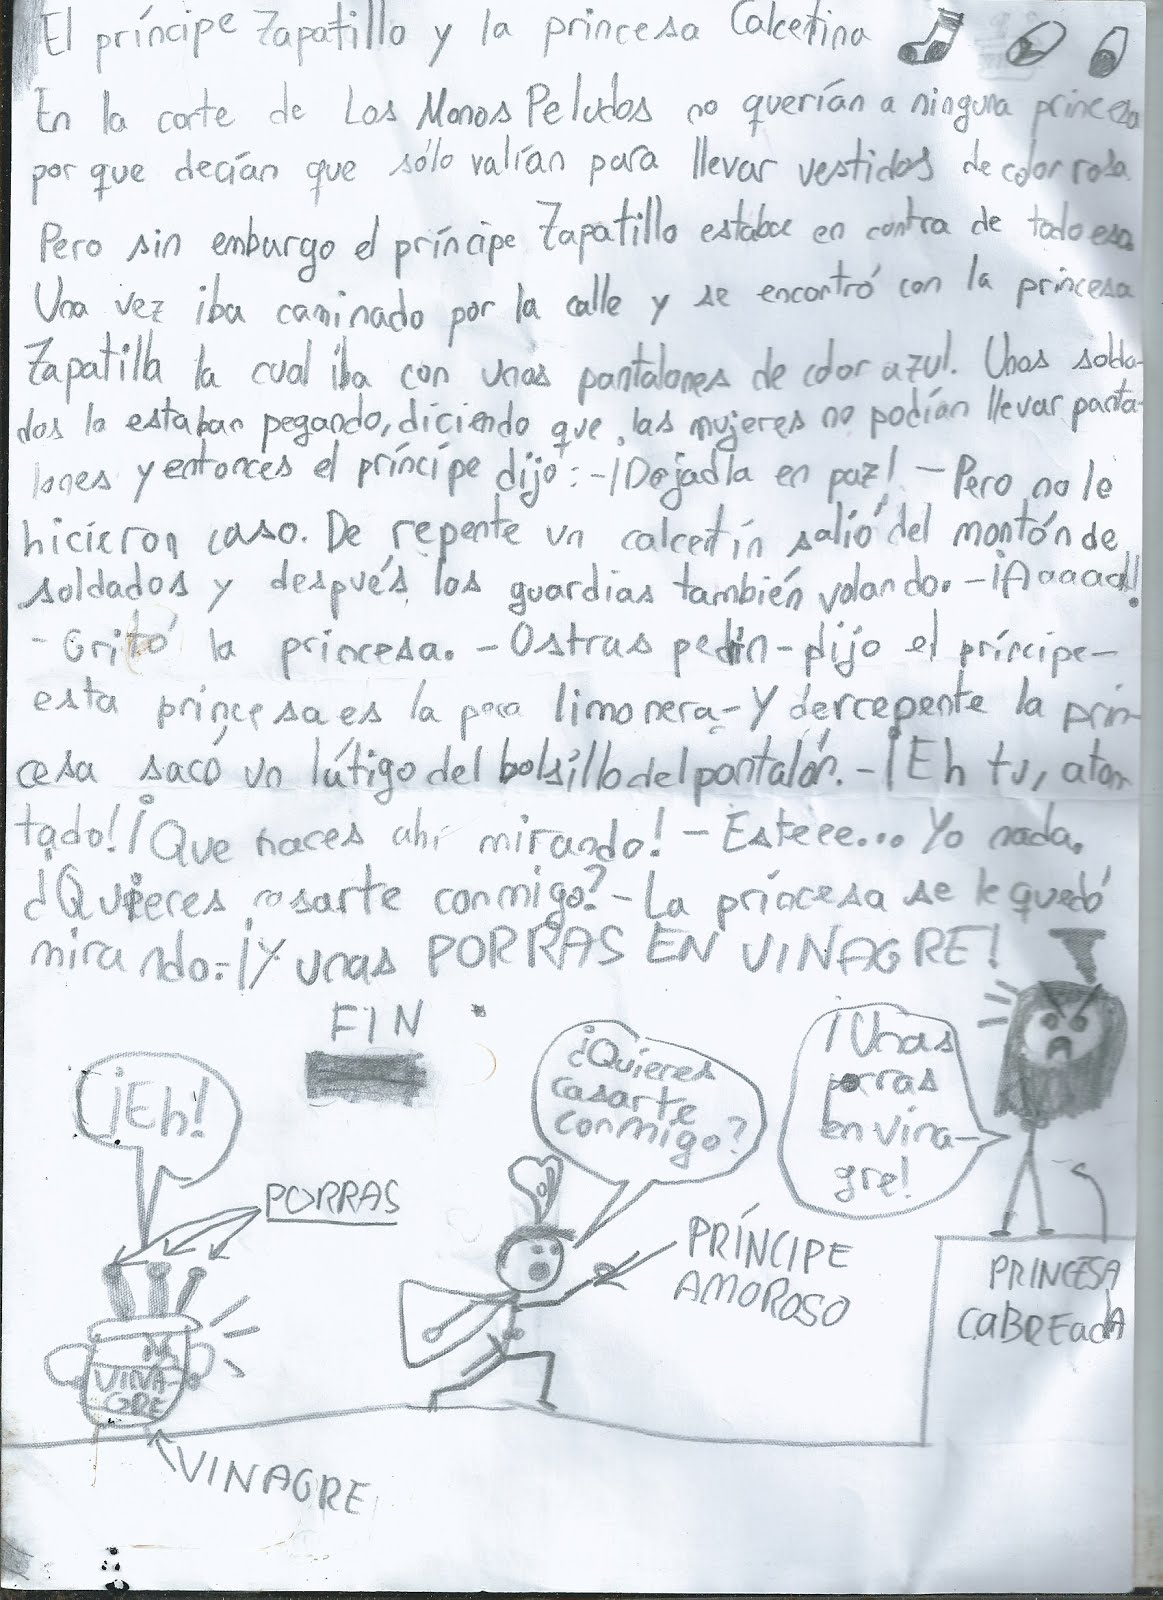 El príncipe Zapatillo y la princesa Calcetina
En la corte de Los Monos Peludos no querían a ninguna princesa
por que decían que sólo valían para llevar vestidos de color rosa.
Pero sin emburgo el príncipe Zapatillo estaba en contra de todo eso
Una vez iba caminado por la calle y se encontró con la princesa
Zapatilla la cual iba con unos pantalones de color azul. Unos solda-
dos la estaban pegando, diciendo que las mujeres no podían llevar panta-
lones y entonces el príncipe dijo: -¡Dejadla en paz! - Pero no le
hicieron caso. De repente un calcetín salió del montón de
soldados y después los guardias también volando. -¡Aaaaa!
- Gritó la princesa. - Ostras pedrín - dijo el príncipe -
esta princesa es la pera limonera - Y derrepente la prin-
cesa sacó un látigo del bolsillo del pantalón. - ¡Eh tu, aton-
tado! ¡Que haces ahí mirando! - Esteee... Yo nada.
¿Quieres casarte conmigo? - La princesa se le quedó
mirando. - ¡Y unas PORRAS EN VINAGRE!
FIN
¡Eh!
PORRAS
VINA-
GRE
VINAGRE
¿Quieres
casarte
conmigo?
PRÍNCIPE
AMOROSO
¡Unas
porras
en vina-
gre!
PRINCESA
CABREadA